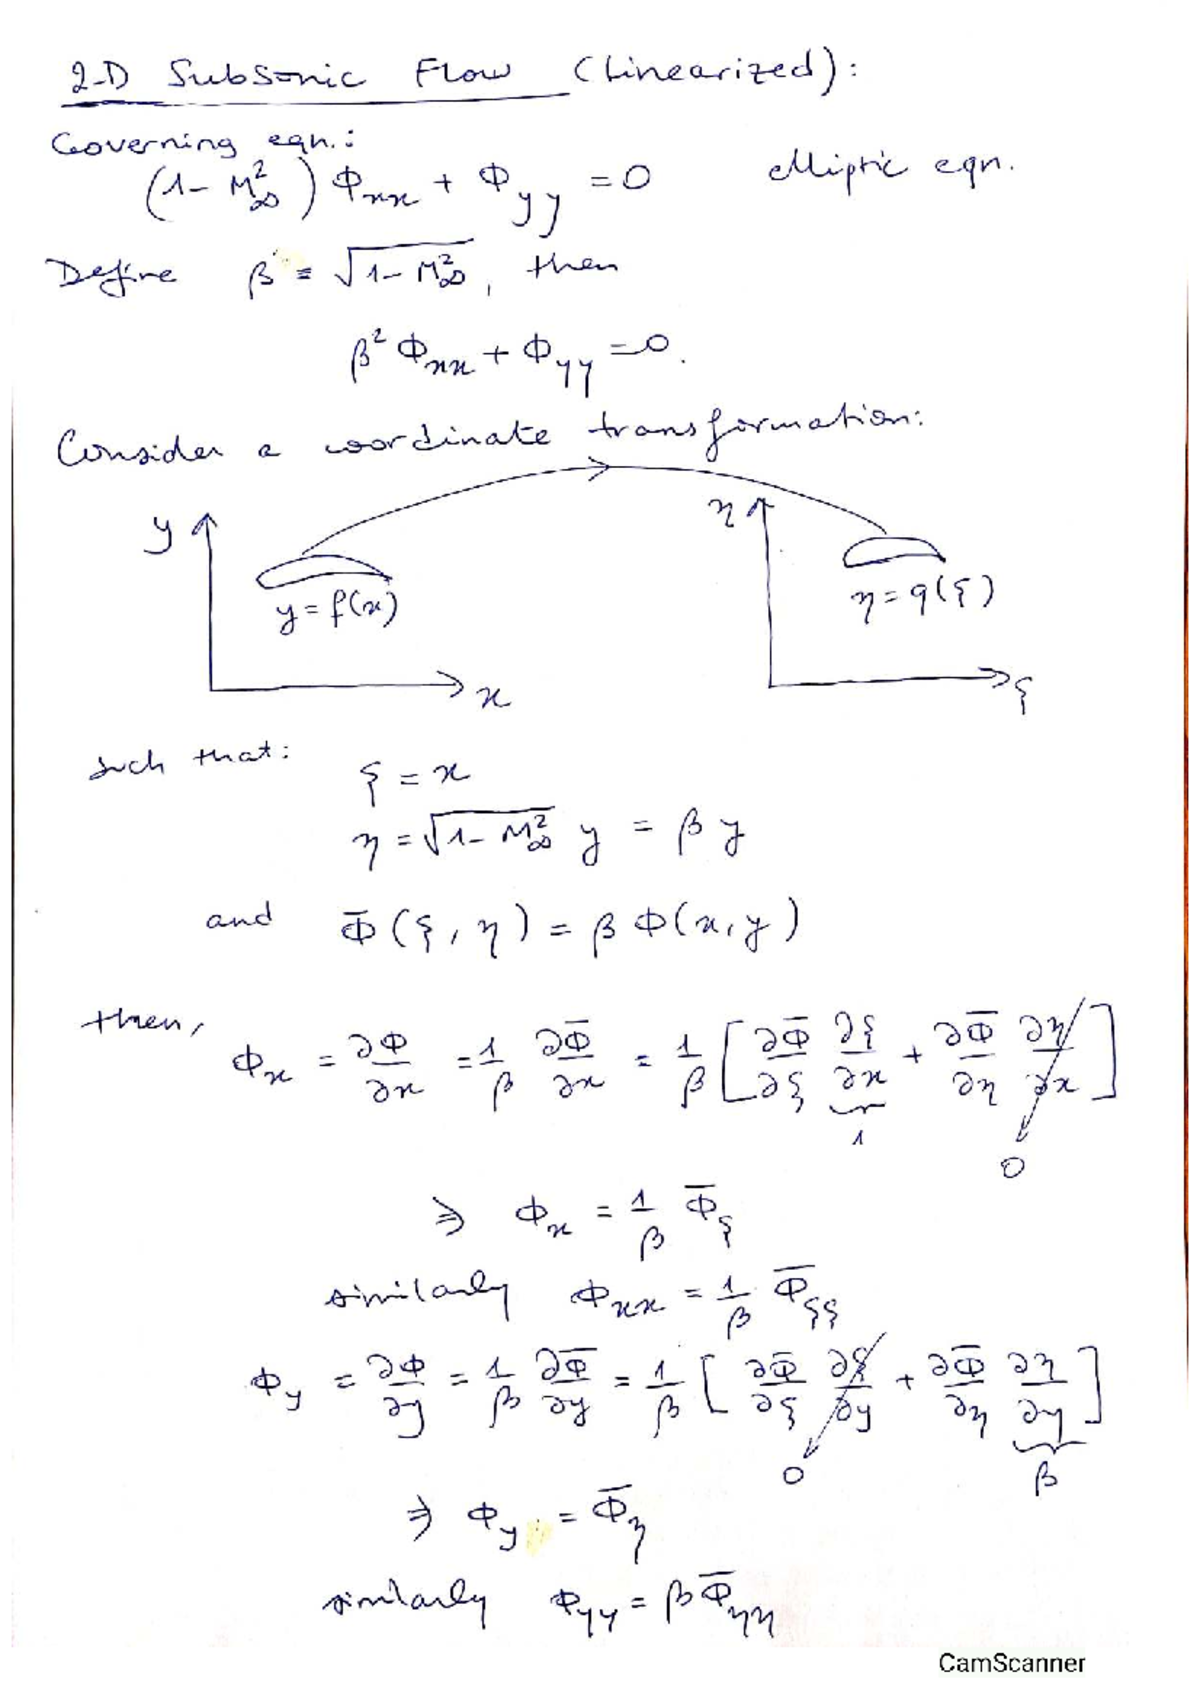 2-D Subsonic Flow (Linearized):
Governing eqn.:
(1-M∞²) Φxx + Φyy = 0 elliptic eqn.
Define β = √(1-M∞²), then
β² Φxx + Φyy = 0.
Consider a coordinate transformation:
y η
y = f(x) η = q(ξ)
x ξ
such that:
ξ = x
η = √(1-M∞²) y = β y
and Φ̄(ξ, η) = β Φ(x, y)
then,
Φx = ∂Φ/∂x = 1/β ∂Φ̄/∂x = 1/β [∂Φ̄/∂ξ ∂ξ/∂x + ∂Φ̄/∂η ∂η/∂x]
1
0
⇒ Φx = 1/β Φ̄ξ
similarly Φxx = 1/β Φ̄ξξ
Φy = ∂Φ/∂y = 1/β ∂Φ̄/∂y = 1/β [∂Φ̄/∂ξ ∂ξ/∂y + ∂Φ̄/∂η ∂η/∂y]
0 β
⇒ Φy = Φ̄η
similarly Φyy = β Φ̄ηη
CamScanner